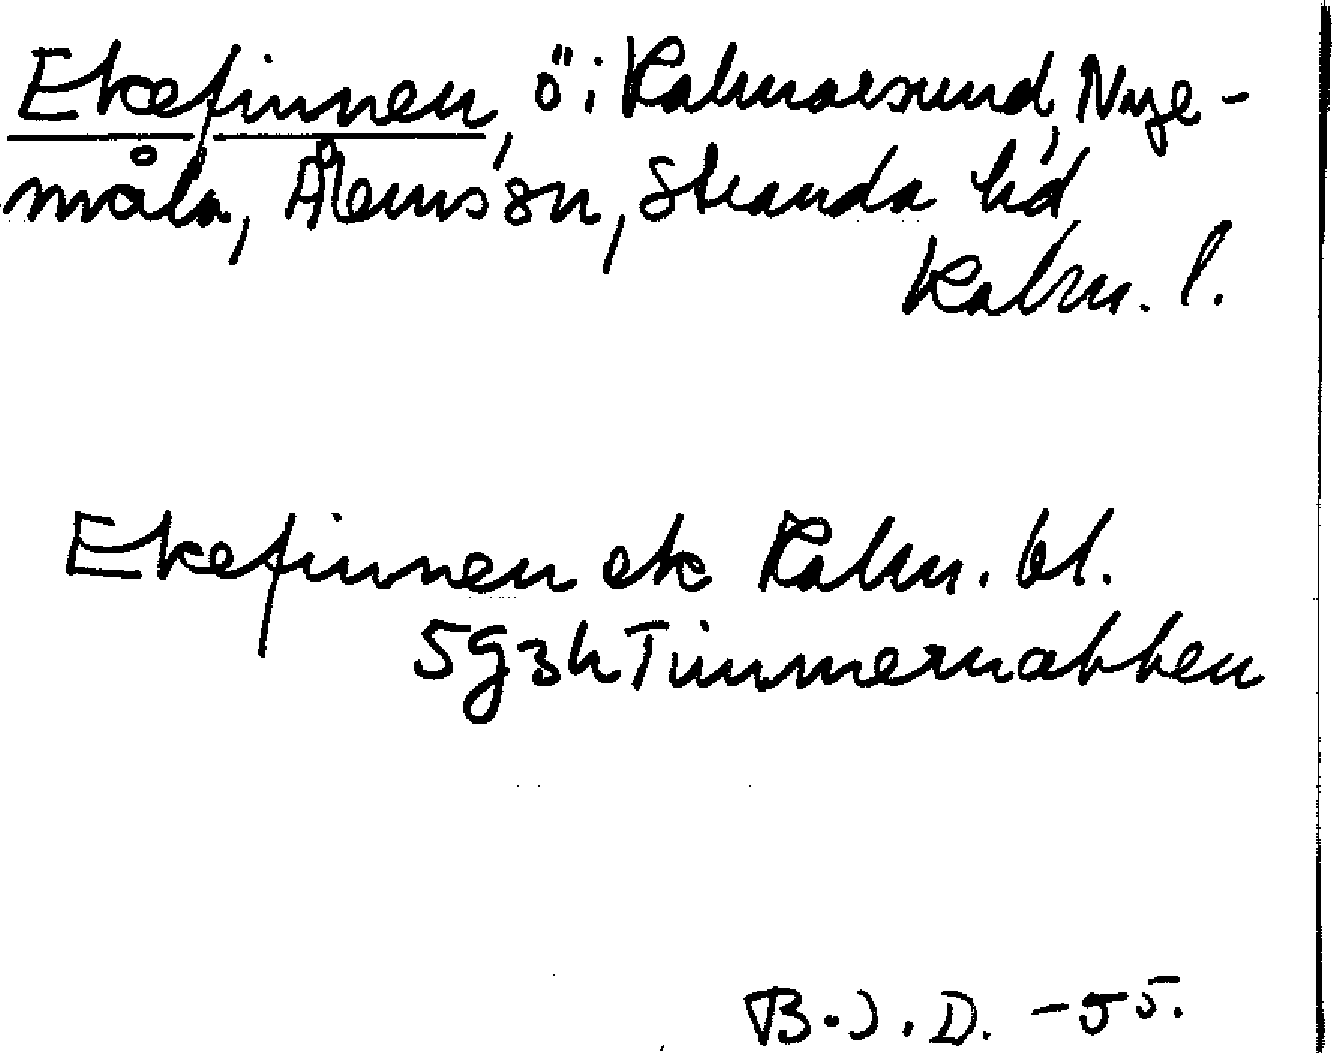 Ekefinnen, ö i Kalmarsund, Nye-
måla, Ålems sn, Stranda hd
Kalm. l.
Ekefinnen ek Kalm. bl.
5g3h Timmernabben
B.J.D. -55.